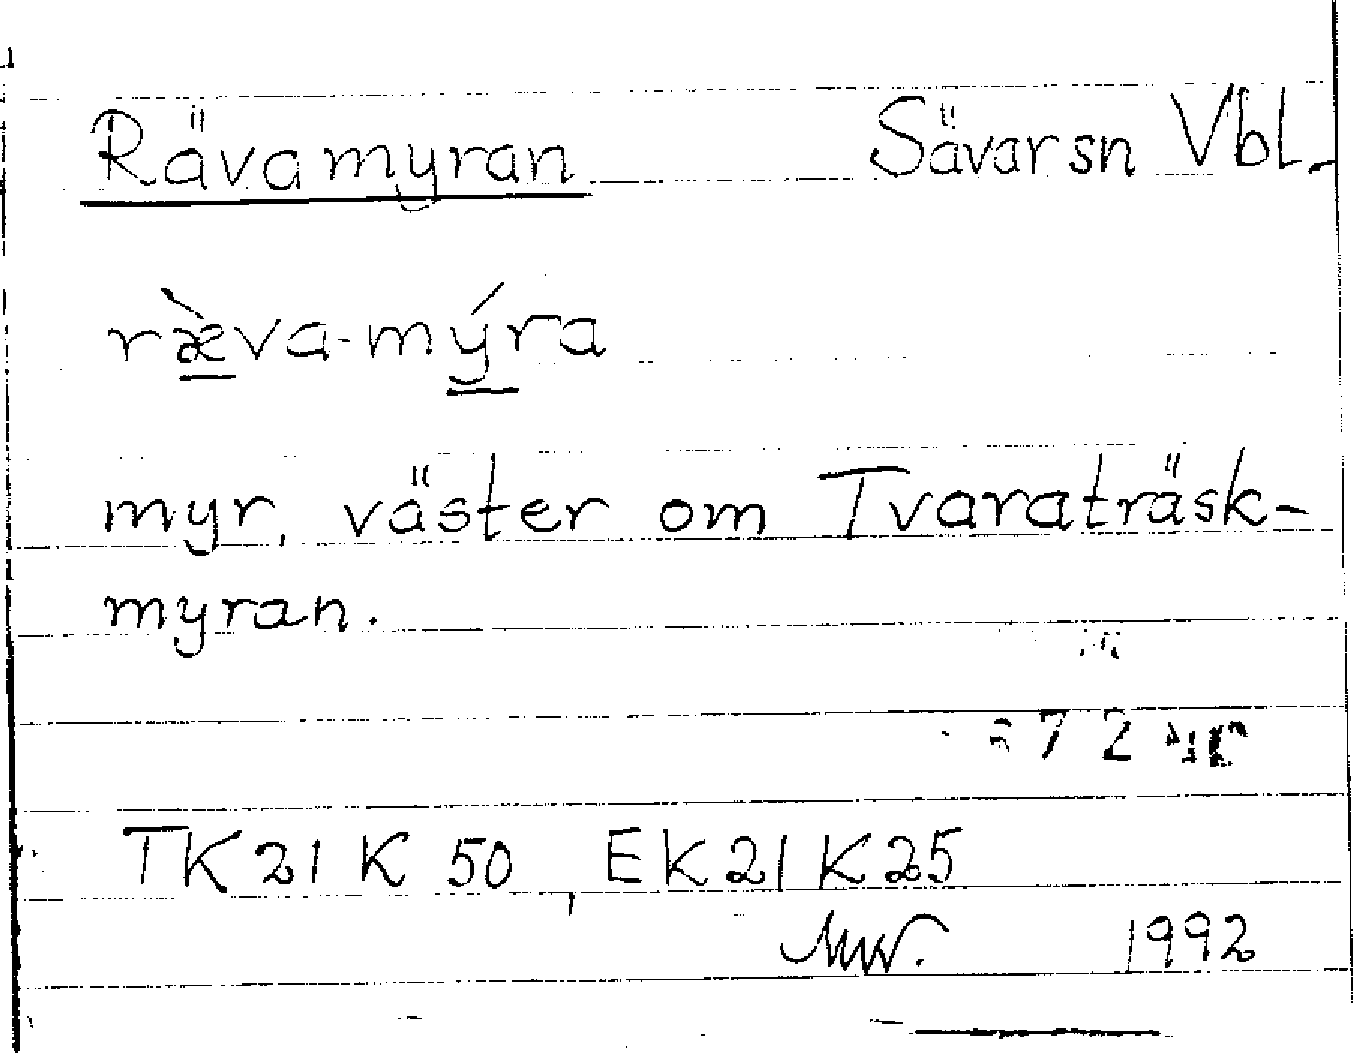 Rävamyran Sävar sn Vbl.
ræ̀va-mýra
myr, väster om Tvaraträsk-
myran.
72
TK 21 K 50, EK 21 K 25
1992